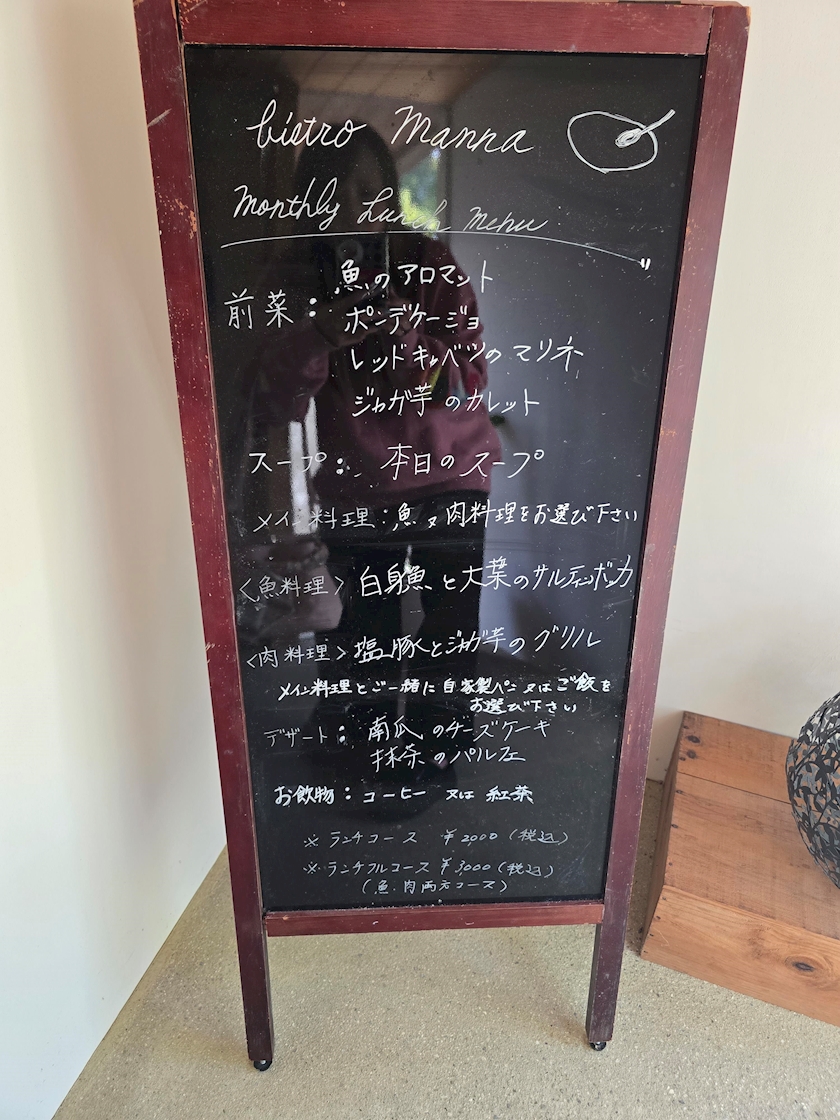 bistro Manna
Monthly Lunch Menu
前菜： 魚のアロマット
ポンデケージョ
レッドキャベツのマリネ
ジャガ芋のカレット
スープ： 本日のスープ
メイン料理：魚又肉料理をお選び下さい
〈魚料理〉白身魚と大葉のサルティンボッカ
〈肉料理〉塩豚とジャガ芋のグリル
メイン料理とご一緒に自家製パン又はご飯を
お選び下さい
デザート： 南瓜のチーズケーキ
抹茶のパルフェ
お飲物：コーヒー 又は 紅茶
※ランチコース ￥2000（税込）
※ランチフルコース ￥3,000（税込）
（魚・肉両方コース）